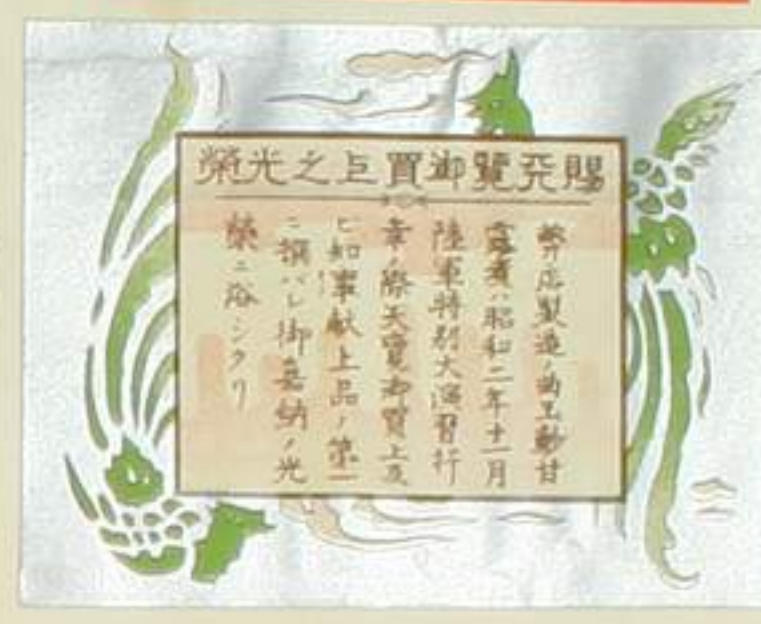 賜天覽御買上之光榮
弊店製造ノ甘
露煮ハ昭和二年十一月
陸軍特別大演習行
幸ノ際天覽御買上及
ビ知事献上品ノ第一
ニ撰バレ御嘉納ノ光
榮ニ浴シタリ